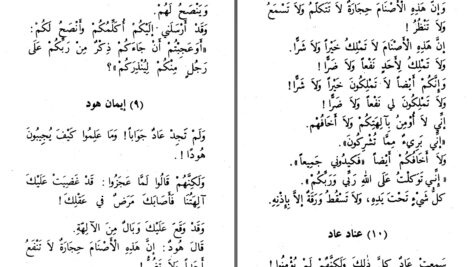 وَيَنْصَحُ لَهُمْ.
وَقَدْ أَرْسَلَنِي إِلَيْكُمْ أُكَلِّمُكُمْ وَأَنْصَحُ لَكُمْ:
«أَوَعَجِبْتُمْ أَنْ جَاءَكُمْ ذِكْرٌ مِنْ رَبِّكُمْ عَلَى
رَجُلٍ مِنْكُمْ لِيُنْذِرَكُمْ»؟
(٩) إيمان هود
وَلَمْ تَجِدْ عَادٌ جَوَاباً! وَمَا عَلِمُوا كَيْفَ يُجِيبُونَ
هُودًا!.
وَلَكِنَّهُمْ قَالُوا لَمَّا عَجَزُوا: قَدْ غَضِبَتْ عَلَيْكَ
آلِهَتُنَا فَأَصَابَكَ مَرَضٌ فِي عَقْلِكَ!
وَقَدْ وَقَعَ عَلَيْكَ وَبَالٌ مِنَ الآلِهَةِ.
قَالَ هُودٌ: إِنَّ هَذِهِ الأَصْنَامَ حِجَارَةٌ لاَ تَنْفَعُ
وَإِنَّ هَذِهِ الأَصْنَامَ حِجَارَةٌ لاَ تَتَكَلَّمُ وَلاَ تَسْمَعُ
وَلاَ تَنْظُرُ!
إِنَّ هَذِهِ الأَصْنَامَ لاَ تَمْلِكُ خَيْراً وَلاَ شَرًّا.
وَلاَ تَمْلِكُ لِأَحَدٍ نَفْعاً وَلاَ ضَرًّا!
وَإِنَّكُمْ أَيْضاً لاَ تَمْلِكُونَ خَيْراً وَلاَ شَرًّا!
وَلاَ تَمْلِكُونَ لِي نَفْعاً وَلاَ ضَرًّا!
إِنِّي لاَ أُؤْمِنُ بِآلِهَتِكُمْ وَلاَ أَخَافُهُمْ.
«إِنِّي بَرِيءٌ مِمَّا تُشْرِكُونَ».
وَلاَ أَخَافُكُمْ أَيْضاً «فَكِيدُونِي جَمِيعاً».
«إِنِّي تَوَكَّلْتُ عَلَى اللهِ رَبِّي وَرَبِّكُمْ».
كُلُّ شَيْءٍ تَحْتَ يَدِهِ، وَلاَ تَسْقُطُ وَرَقَةٌ إِلاَّ بِإِذْنِهِ.
(١٠) عناد عاد
سَمِعَتْ عَادٌ كُلَّ ذَلِكَ وَلَكِنَّهُمْ لَمْ يُؤْمِنُوا!